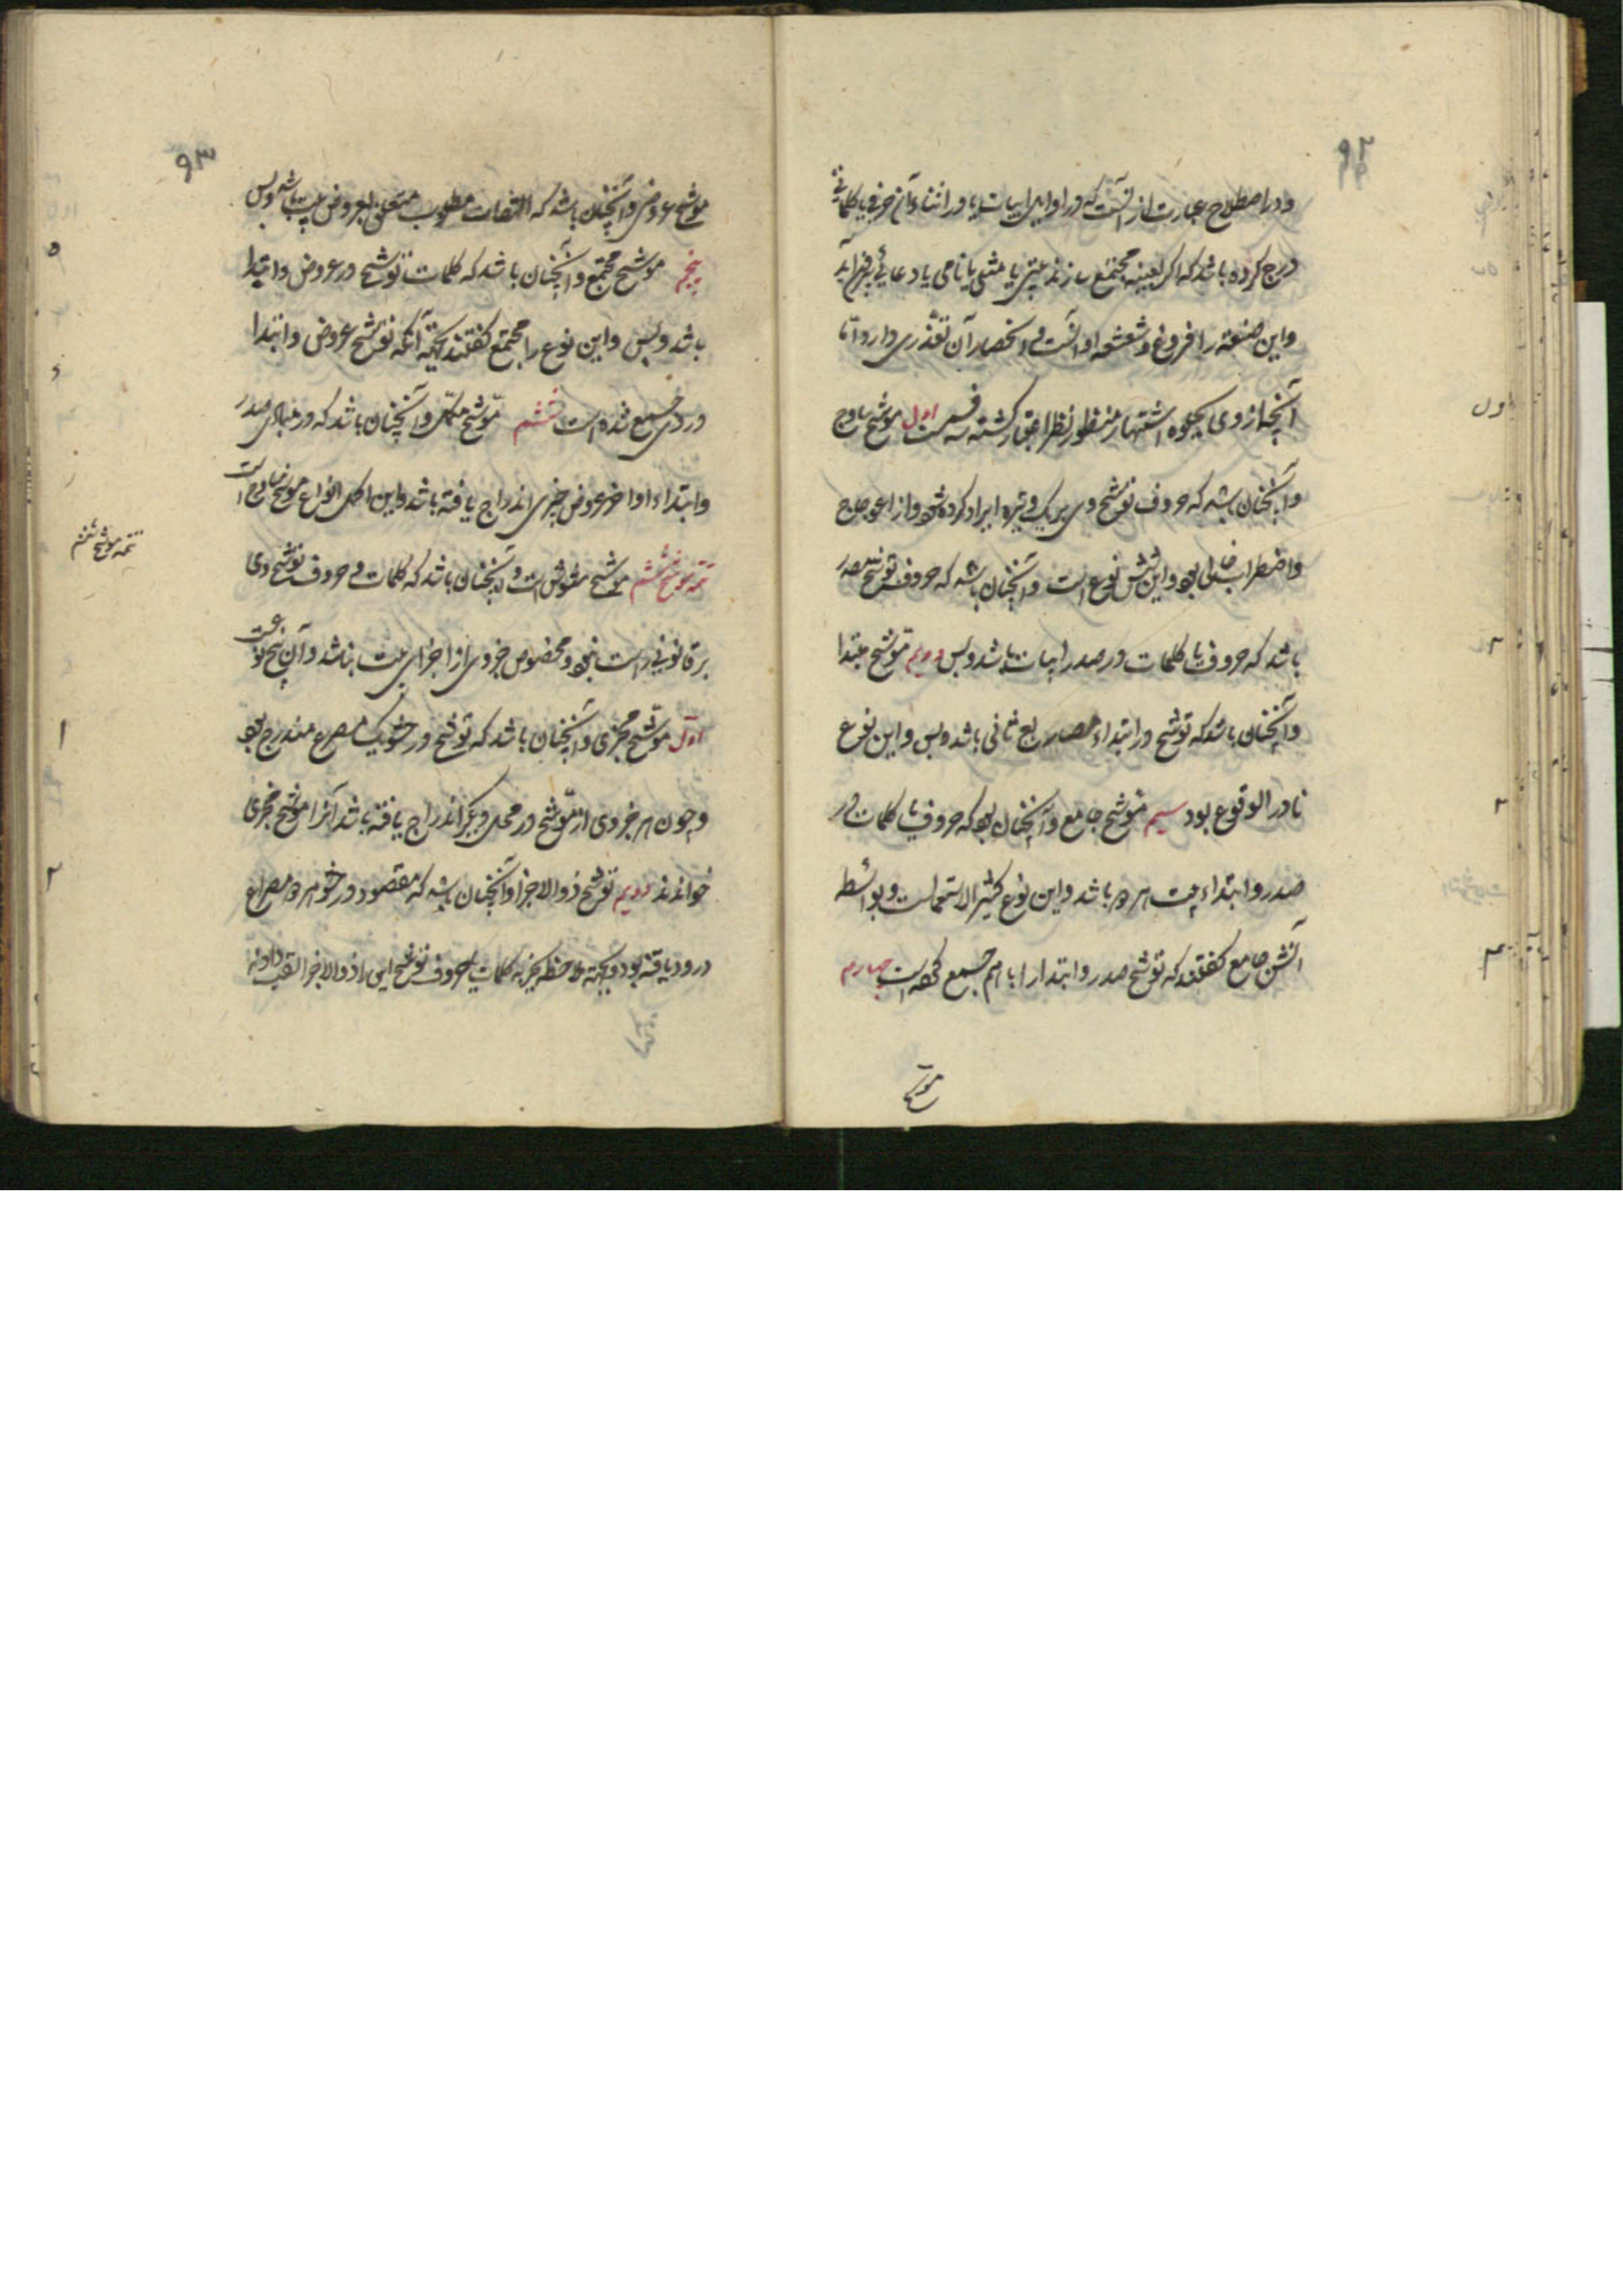 ۹۲
و در اصطلاح عبارت از آنست که در اوایل ابیات یا در اثناء آن حرفی یا کلماتی
درج کرده باشد که اگر بعینه مجتمع سازند بیتی یا مثلی یا نامی یا دعائی برآید
و این صنعة را فروغ و شعشعه اوانست و انحصار آن تعذری دارد اما
آنچه از وی بجلوه اشتهار منظور نظر اعتبار گشته سه قسمت اول موشح سادج
و آنچنان باشد که حروف توشیح وی بر یک وتیره ایراد کرده شود و از اعوجاج
و اضطراب خالی بود و این شش نوع است و آنچنان باشد که حروف توشیح صدر
باشد که حروف یا کلمات در صدر ابیات باشد و بس دویم توشیح مبتدا
و آنچنان باشد که توشیح در ابتداء مصاریع ثانی باشد و بس و این نوع
نادر الوقوع بود سیم موشح جامع و آنچنان بود که حروف یا کلمات در
صدر و ابتداء بیت هر دو باشد و این نوع کثیر الاستعمالست و بواسطه
آنش جامع گفتند که توشیح صدر و ابتدا را با هم جمع کرده است چهارم
موشح
اول
۲
۳
۴
۹۳
موشح عروضی و آنچنان باشد که التفات مطلوب متعلق بعروض بیت باشد و بس
پنجم موشح مجتمع و آنچنان باشد که کلمات توشیح در عروض و ابتدا
باشد و بس و این نوع را مجتمع گفتند بجهة آنکه توشیح عروض و ابتدا
در وی جمع شده است ششم موشح مکمل و آنچنان باشد که در مبادی صدر
و ابتداء و اواخر عروض چیزی اندراج یافته باشد و این اکمل انواع موشح سادج است
تتمه موشح ششم موشح مشوش است و آنچنان باشد که کلمات و حروف توشیح وی
بر قانونی راست نبود و مخصوص جزوی از اجزای بیت نباشد و آن پنج نوعست
اول موشح مجزی و آنچنان باشد که توشیح در حشو یک مصرع مندرج بود
و چون هر جزوی از توشیح در محلی دیگر اندراج یافته باشد آنرا موشح مجزی
خوانند دویم توشیح ذوالاجزا و آنچنان باشد که مقصود در حشو هر دو مصراع
درود یافته بود و بجهة ملاحظه تجزیه کلمات یا حروف توشیح این را ذوالاجزا لقب داده اند
۵
۶
تتمه موشح ششم
۱
۲